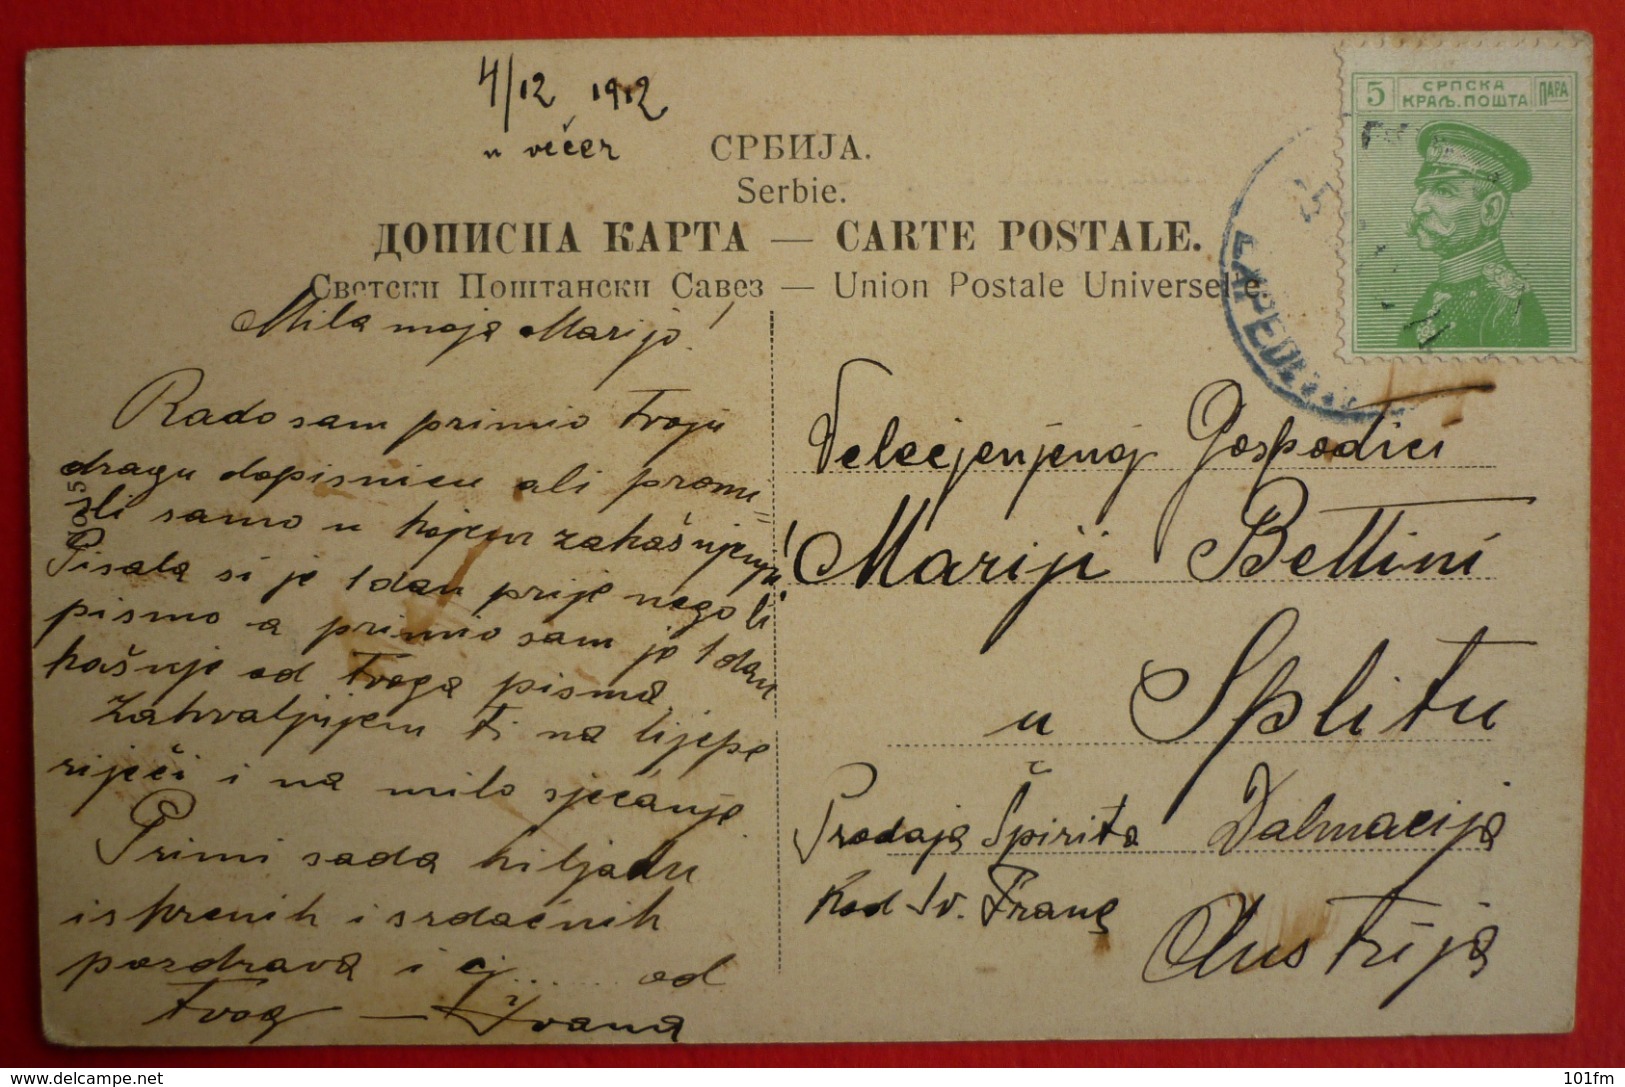 4/12 1912
u večer
СРБИЈА.
Serbie.
ДОПИСНА КАРТА — CARTE POSTALE.
Светски Поштански Савез — Union Postale Universelle
5 СРПСКА КРАЉ. ПОШТА ПАРА
Mila moja Marijo!
Rado sam primio Tvoju
dragu dopisnicu ali promi=
sli samo u kojem zakašnjenju!
Pisala si je 1 dan prije nego li
pismo a primio sam je 1 dan
kašnje od Tvoga pisma.
Zahvaljujem Ti na lijepe
riječi i na milo sjećanje.
Primi sada hiljadu
iskrenih i srdačnih
pozdrava i cj...... od
Tvog — Ivana
Velecjenjenoj Gospodici
Mariji Bettini
u Splitu
Prodaja Špirita Dalmacija
kod Sv. Frane
Austrija